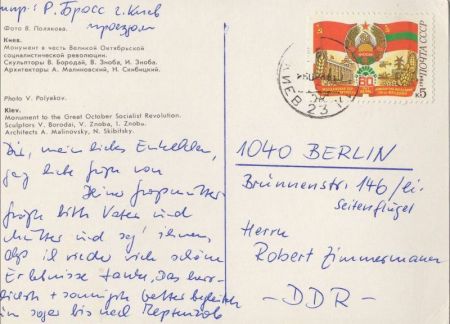 Р. Бросс г. Киев
проездом
Фото В. Полякова.
Киев.
Монумент в честь Великой Октябрьской
социалистической революции.
Скульпторы В. Бородай, В. Зноба, И. Зноба.
Архитекторы А. Малиновский, Н. Скибицкий.
Photo V. Polyakov.
Kiev.
Monument to the Great October Socialist Revolution.
Sculptors V. Borodai, V. Znoba, I. Znoba.
Architects A. Malinovsky, N. Skibitsky.
Dir, mein liebes Enkelchen,
liebe Grüße von
Deiner Großmutter
grüße bitte Vater und
Mutter und sag' ihnen,
daß ich wieder sehr schöne
Erlebnisse hatte. Das
sonnigste
sogar bis nach
ПОЧТА СССР
к5
60
КИЕВ 23
1040 BERLIN
Brunnenstr. 146/
Seitenflügel
Herrn
Robert Zimmermann
- DDR -